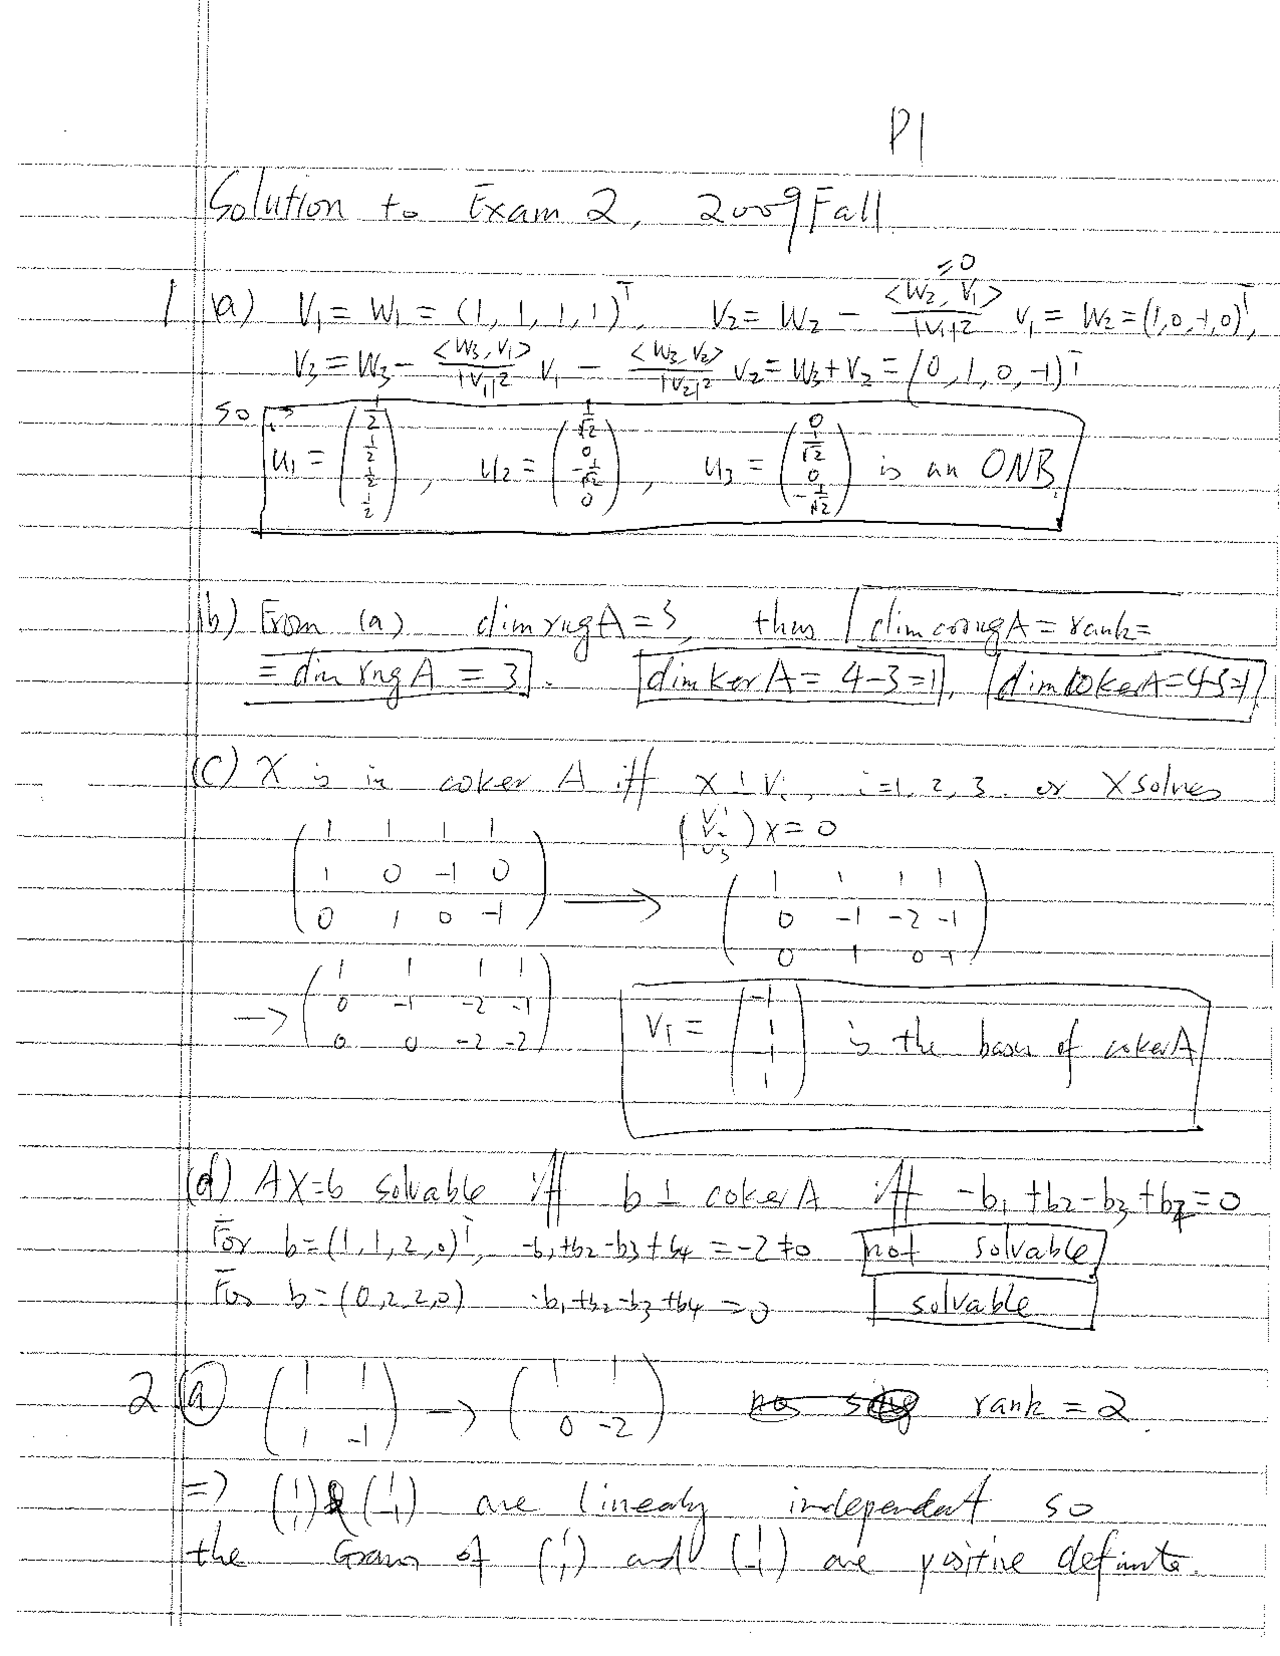 P1
Solution to Exam 2, 2009 Fall
1 (a) V₁ = W₁ = (1, 1, 1, 1)ᵀ, V₂ = W₂ - <W₂, V₁>/|V₁|² V₁ = W₂ = (1,0,-1,0)ᵀ, =0
V₃ = W₃ - <W₃, V₁>/|V₁|² V₁ - <W₃, V₂>/|V₂|² V₂ = W₃ + V₂ = (0, 1, 0, -1)ᵀ
so u₁ = (1/2, 1/2, 1/2, 1/2), u₂ = (1/√2, 0, -1/√2, 0), u₃ = (0, 1/√2, 0, -1/√2) is an ONB.
(b) From (a) dim rng A = 3, thus dim corng A = rank =
= dim rng A = 3. dim ker A = 4-3=1, dim coker A=4-3=1
(c) X is in coker A iff x ⊥ Vᵢ, i=1, 2, 3. or X solves
(V₁ V₂ V₃) x = 0
(1 1 1 1
1 0 -1 0
0 1 0 -1) → (1 1 1 1
0 -1 -2 -1
0 1 0 -1)
→ (1 1 1 1
0 -1 -2 -1
0 0 -2 -2) V₁ = (-1, 1, -1, 1) is the base of coker A
(d) AX=b solvable iff b ⊥ coker A iff -b₁ + b₂ - b₃ + b₄ = 0
For b=(1,1,2,0)ᵀ, -b₁+b₂-b₃+b₄ = -2 ≠ 0 not solvable
For b=(0,2,2,0) -b₁+b₂-b₃+b₄ = 0 solvable
2 (a) (1 1
1 -1) → (1 1
0 -2) rank = 2.
=> (1 1) & (1 -1) are linearly independent so
the Gram of (1 1) and (1 -1) are positive definite.